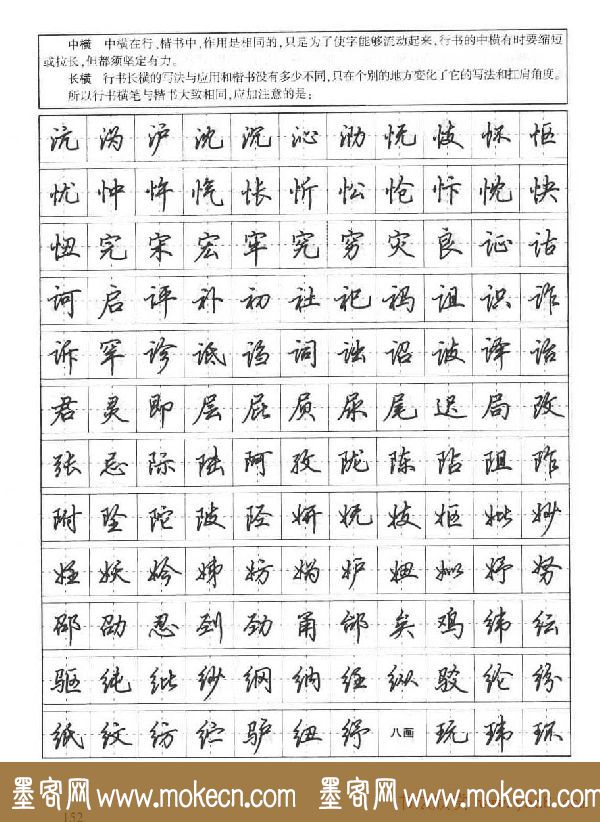 中横　中横在行、楷书中，作用是相同的，只是为了使字能够流动起来，行书的中横有时要缩短
或拉长，但都须坚定有力。
长横　行书长横的写法与应用和楷书没有多少不同，只在个别的地方变化了它的写法和扛肩角度。
所以行书横笔与楷书大致相同，应加注意的是：
沆 沩 沪 沈 沉 沁 泐 怃 忮 怀 怄
忧 忡 忤 忾 怅 忻 忪 怆 忭 忱 快
忸 完 宋 宏 牢 究 穷 灾 良 证 诂
诃 启 评 补 初 社 祀 祃 诅 识 诈
诉 罕 诊 诋 诌 词 诎 诏 诐 译 诒
君 灵 即 层 屁 屃 尿 尾 迟 局 改
张 忌 际 陆 阿 孜 陇 陈 阽 阻 阼
附 坠 陀 陂 陉 妍 妩 妓 妪 妣 妙
妊 妖 妗 姊 妨 妫 妒 妞 姒 妤 努
邵 劭 忍 刭 劲 甬 邰 矣 鸡 纬 纭
驱 纯 纰 纱 纲 纳 纴 纵 驳 纶 纷
纸 纹 纺 纻 驴 纽 纾 八画 玩 玮 环
墨客网 www.mokecn.com 墨客网 www.mokecn.com
152